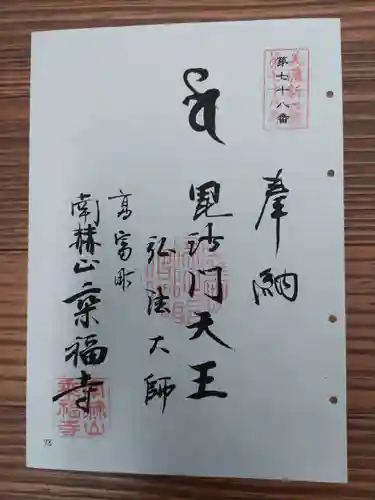 第七十八番
奉納
毘沙門天王
弘法大師
高富町
南林山
乗福寺
78